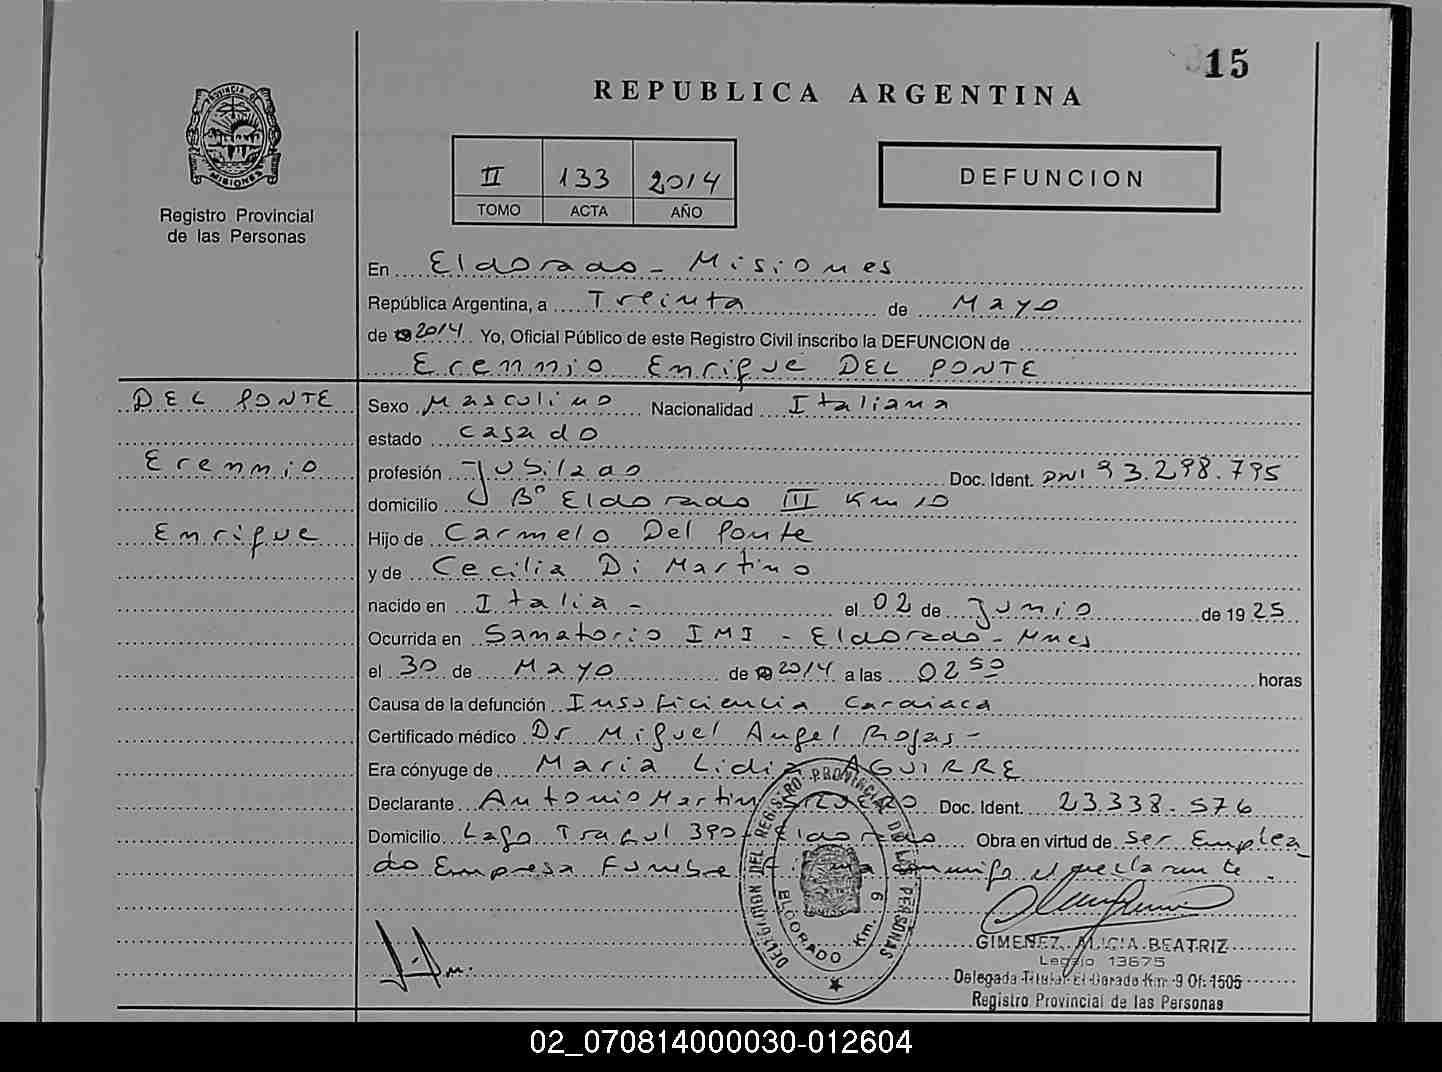 15
REPUBLICA ARGENTINA
PROVINCIA DE MISIONES
Registro Provincial
de las Personas
II 133 2014
TOMO ACTA AÑO
DEFUNCION
En Eldorado - Misiones
República Argentina, a Treinta de Mayo
de 2014 Yo, Oficial Público de este Registro Civil inscribo la DEFUNCION de
Erennio Enrique DEL PONTE
DEL PONTE
Erennio
Enrique
Sexo Masculino Nacionalidad Italiana
estado casado
profesión Jubilado Doc. Ident. DNI 93.298.795
domicilio B° Eldorado III Km 10
Hijo de Carmelo Del Ponte
y de Cecilia Di Martino
nacido en Italia - el 02 de Junio de 1925
Ocurrida en Sanatorio IMI - Eldorado - Mnes
el 30 de Mayo de 2014 a las 02 50 horas
Causa de la defunción Insuficiencia Cardiaca
Certificado médico Dr Miguel Angel Rojas -
Era cónyuge de Maria Lidia AGUIRRE
Declarante Antonio Martin Doc. Ident. 23.338.576
Domicilio Lago 390 - Eldorado Obra en virtud de ser Emplea
do Empresa Funebre el declarante.
DELEGACION DEL REGISTRO PROVINCIAL DE LAS PERSONAS
ELDORADO Km. 9
GIMENEZ, ALICIA BEATRIZ
Legajo 13675
Delegada Titular El Dorado Km. 9 Of. 1505
Registro Provincial de las Personas
02_070814000030-012604